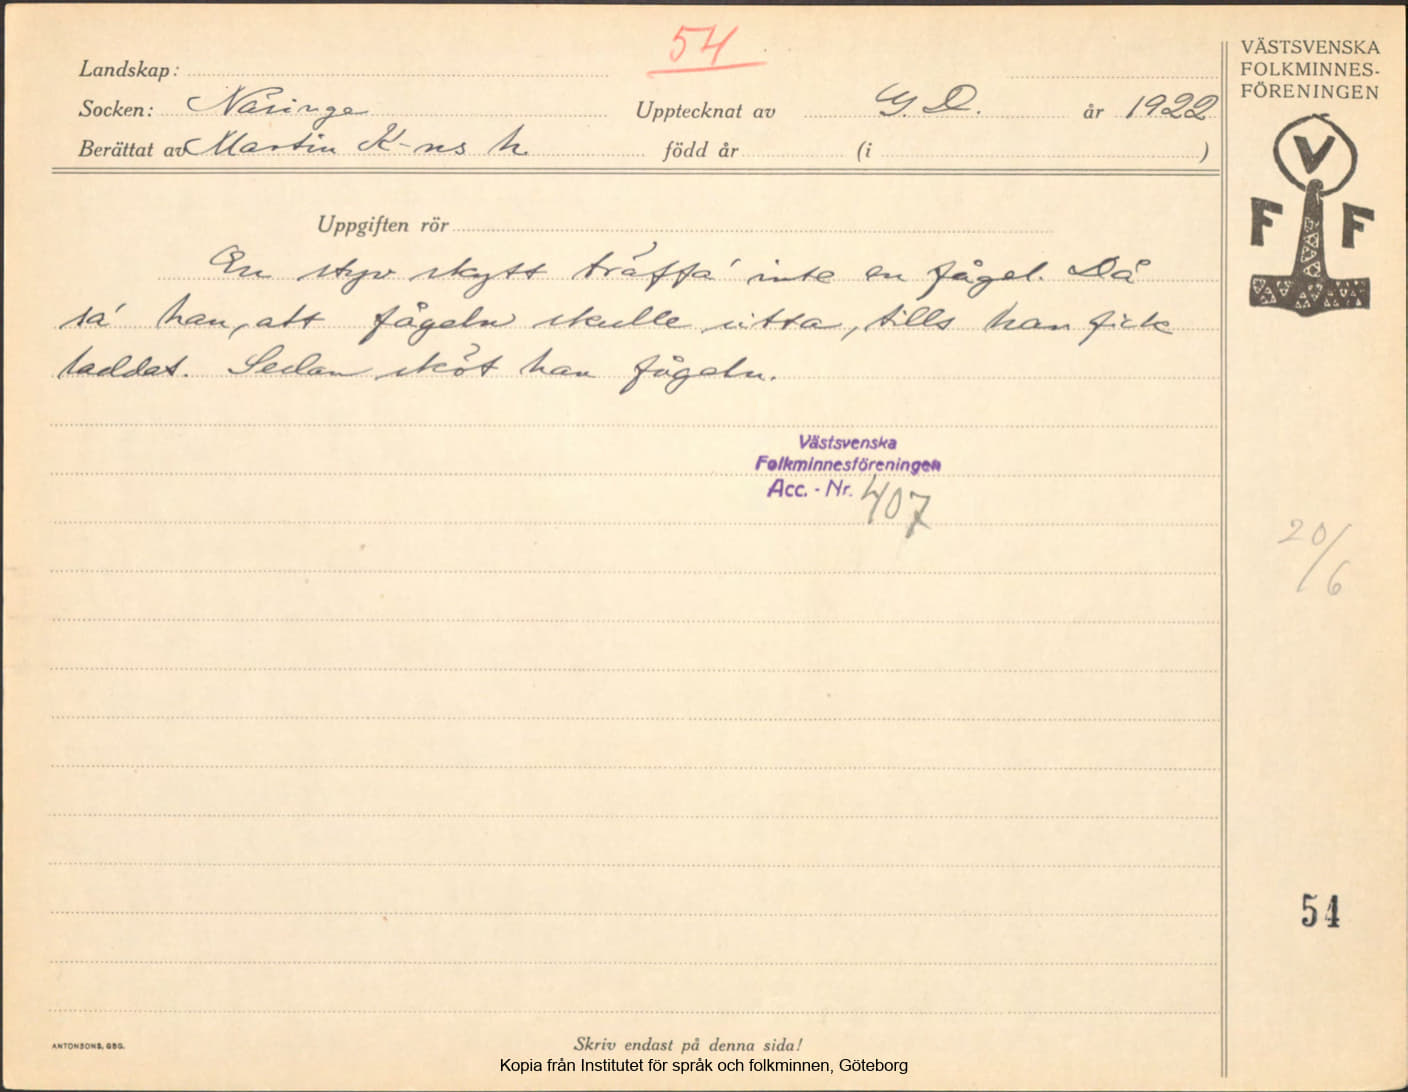 54
Landskap:
VÄSTSVENSKA
FOLKMINNES-
FÖRENINGEN
Socken: Näsinge Upptecknat av G. D. år 1922
Berättat av Martin K-ns h. född år (i )
V
F F
Uppgiften rör
En styv skytt träffa' inte en fågel. Då
sa' han, att fågeln skulle sitta, tills han fick
laddat. Sedan sköt han fågeln.
Västsvenska
Folkminnesföreningen
Acc. - Nr. 407
20/6
54
ANTONSONS, GBG.
Skriv endast på denna sida!
Kopia från Institutet för språk och folkminnen, Göteborg